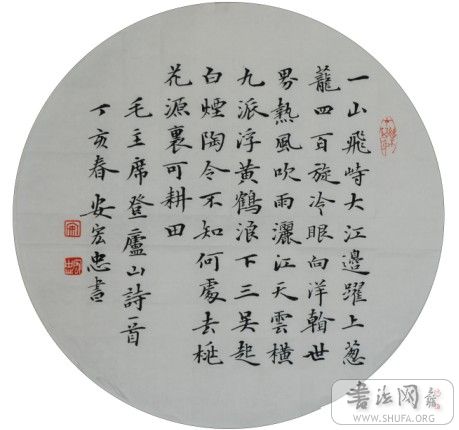 一山飛峙大江邊躍上葱
蘢四百旋冷眼向洋翰世
界熱風吹雨灑江天雲橫
九派浮黄鶴浪下三吴起
白煙陶令不知何處去桃
花源裏可耕田
毛主席登廬山詩一首
丁亥春安宏忠書
書法网
WWW.SHUFA.ORG